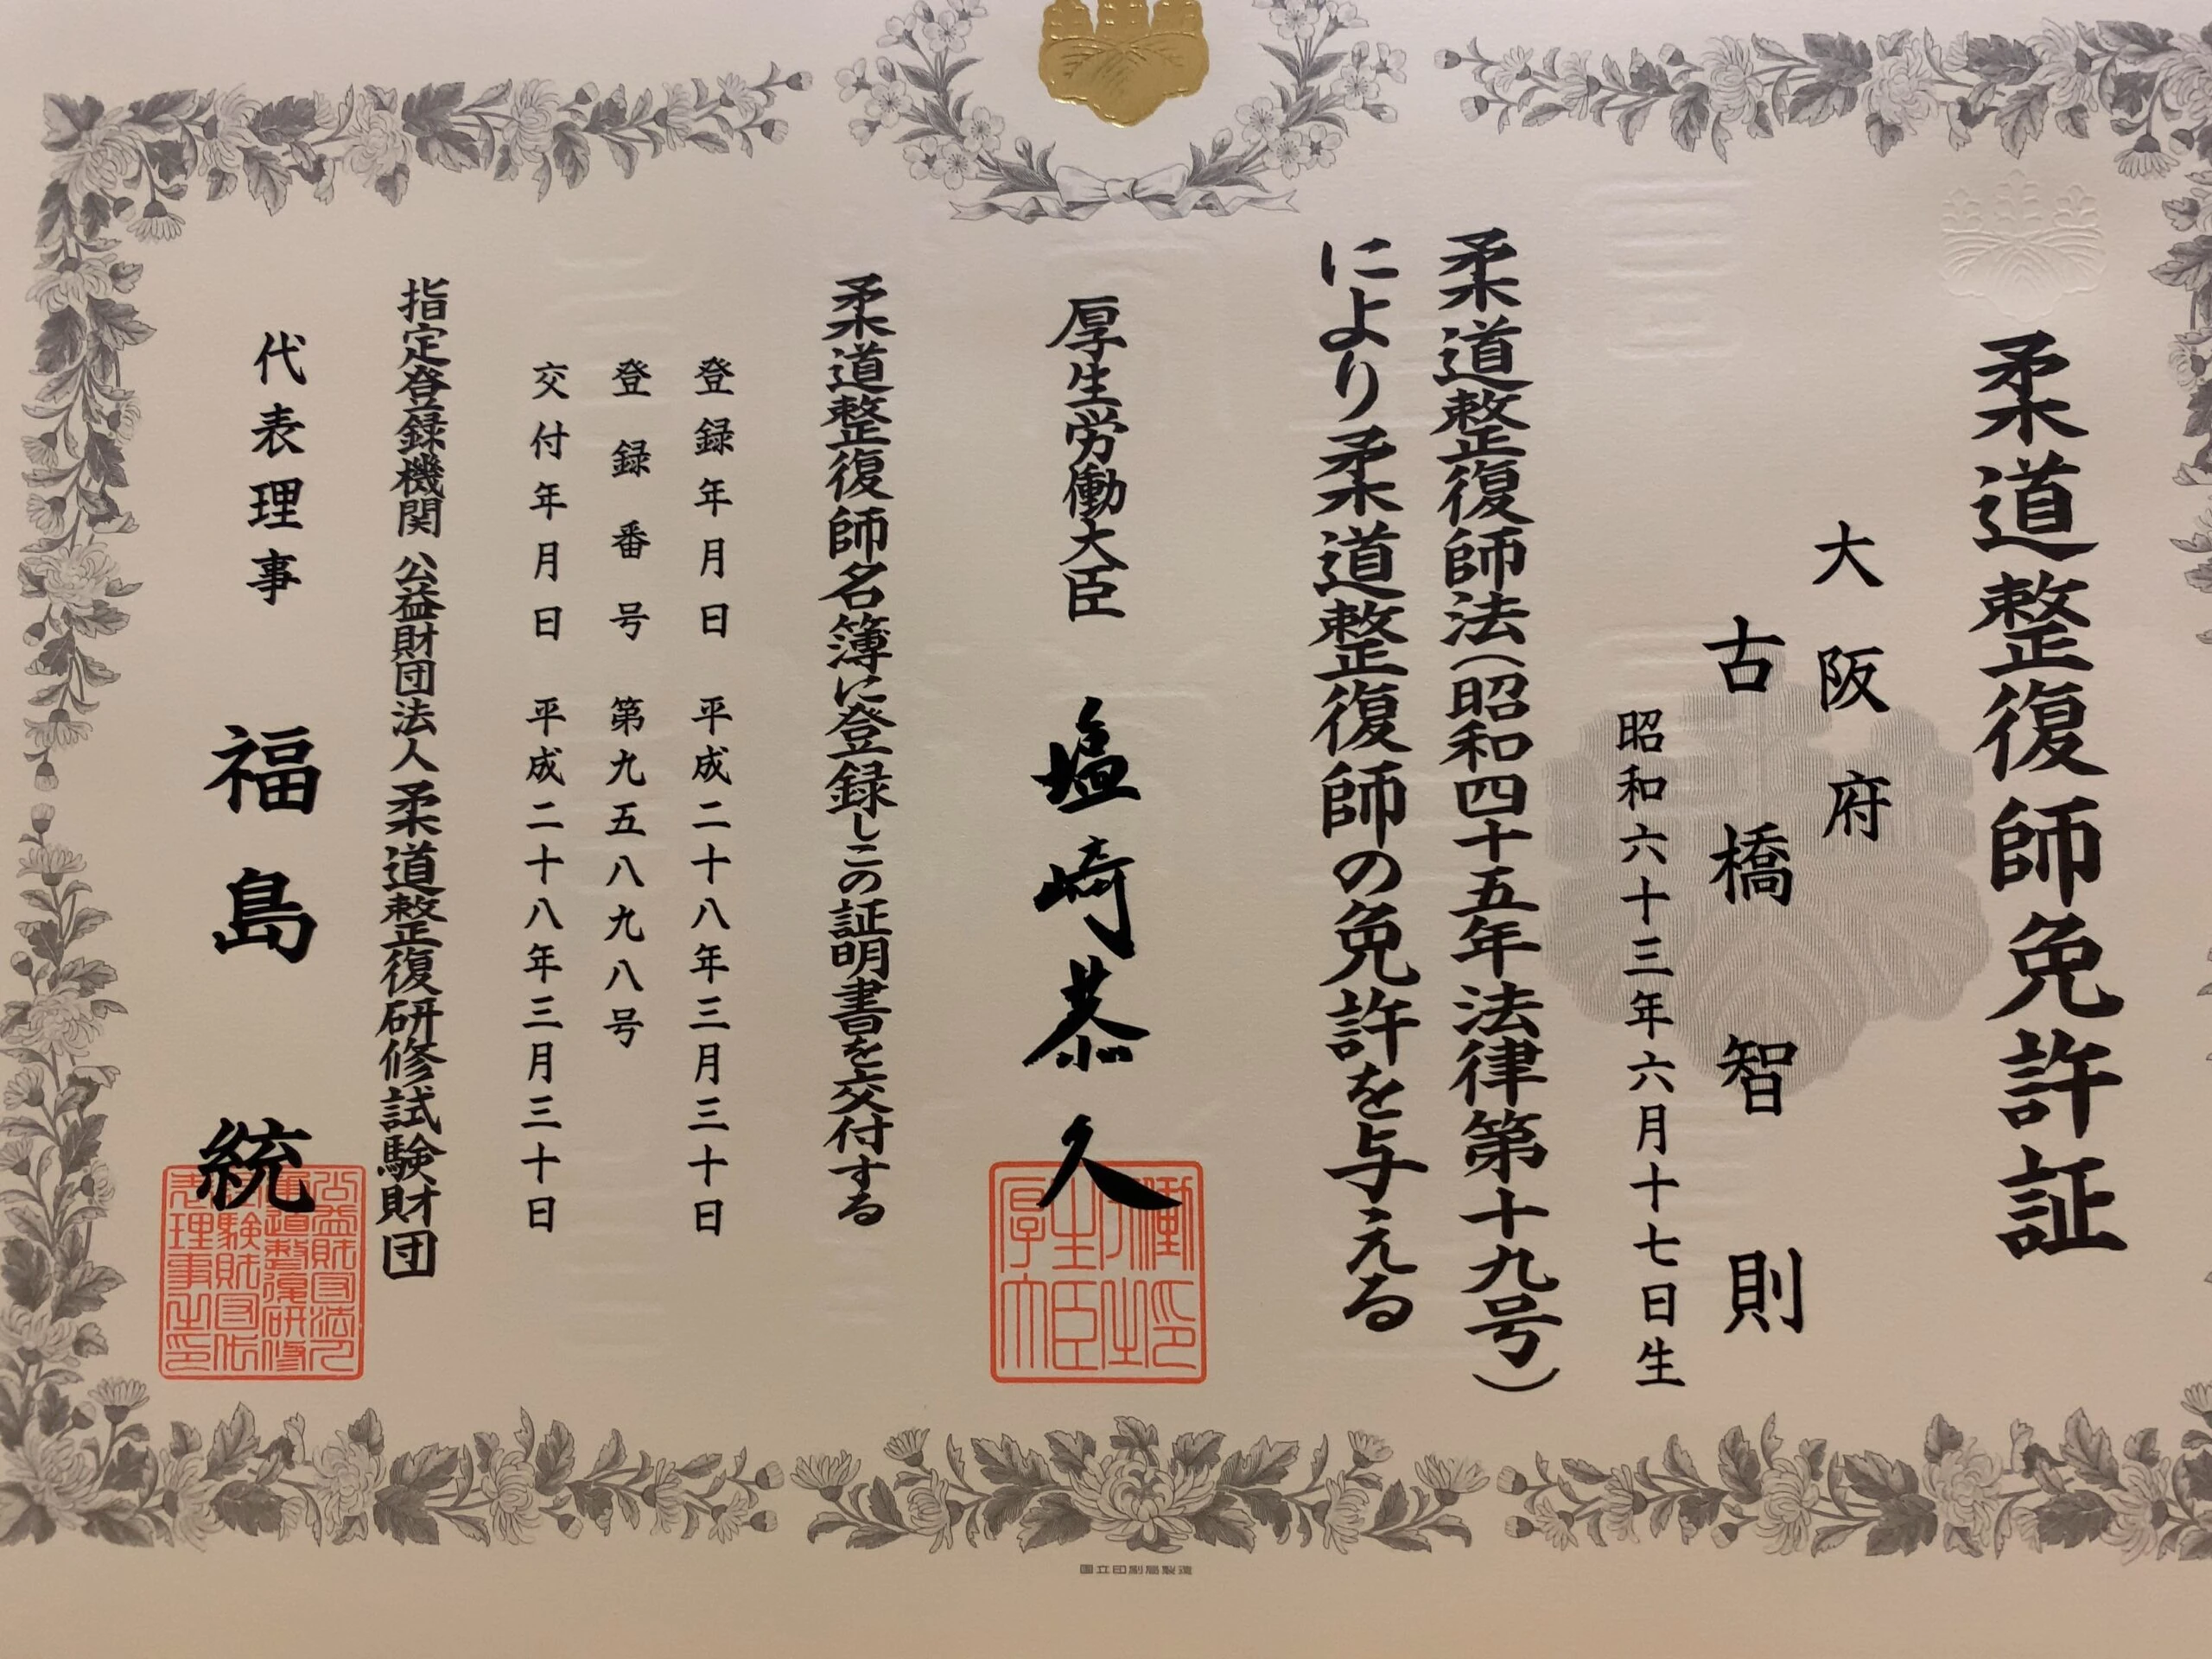 柔道整復師免許証
大阪府
古橋智則
昭和六十三年六月十七日生
柔道整復師法（昭和四十五年法律第十九号）
により柔道整復師の免許を与える
厚生労働大臣 塩崎恭久
厚生労働大臣之印
柔道整復師名簿に登録しこの証明書を交付する
登録年月日 平成二十八年三月三十日
登録番号 第九五八九八号
交付年月日 平成二十八年三月三十日
指定登録機関 公益財団法人 柔道整復研修試験財団
代表理事 福島統
国立印刷局製造